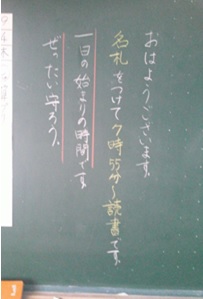 おはようございます。
名札をつけて7時55分〜読書です。
一日の始まりの時間です。
ぜったい守ろう。